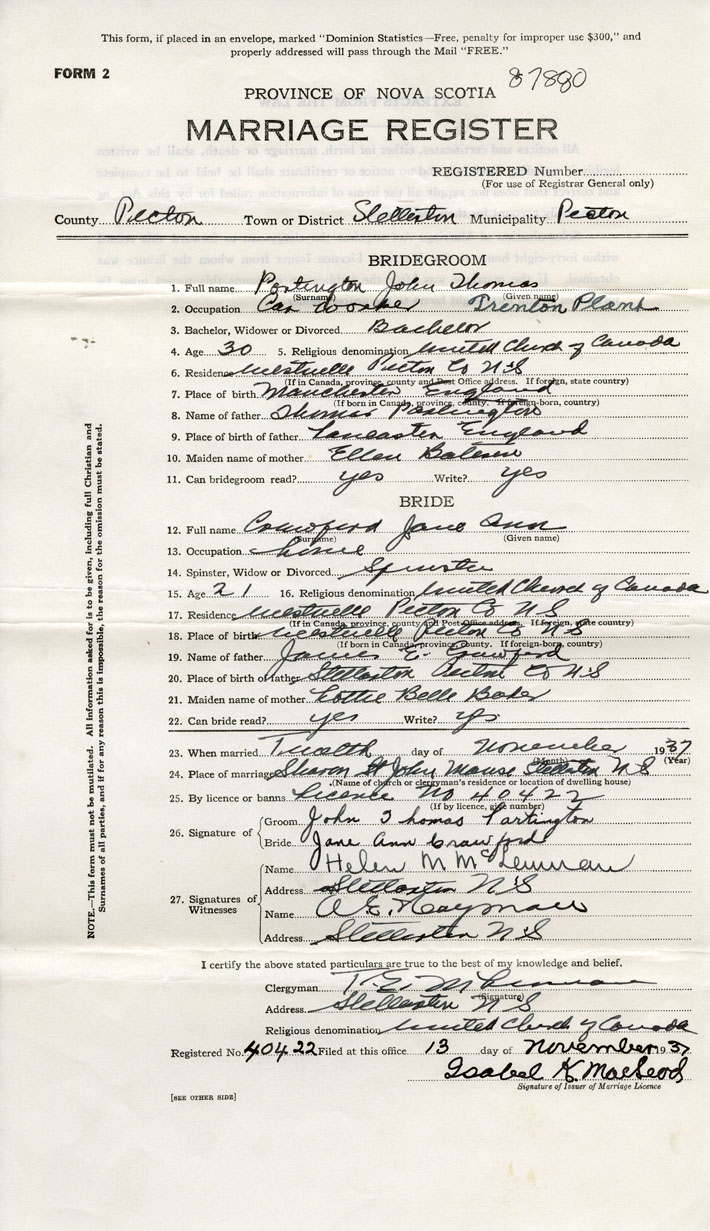 This form, if placed in an envelope, marked "Dominion Statistics—Free, penalty for improper use $300," and
properly addressed will pass through the Mail "FREE."
FORM 2
87880
PROVINCE OF NOVA SCOTIA
MARRIAGE REGISTER
REGISTERED Number
(For use of Registrar General only)
County Pictou Town or District Stellarton Municipality Pictou
BRIDEGROOM
1. Full name Partington John Thomas
(Surname) (Given name)
2. Occupation Car Worker Trenton Plant
3. Bachelor, Widower or Divorced Bachelor
4. Age 30 5. Religious denomination United Church of Canada
6. Residence Westville Pictou Co N.S
(If in Canada, province, county and Post Office address. If foreign, state country)
7. Place of birth Manchester England
(If born in Canada, province, county. If foreign-born, country)
8. Name of father Thomas Partington
9. Place of birth of father Lancaster England
10. Maiden name of mother Ellen
11. Can bridegroom read? yes Write? yes
BRIDE
12. Full name Crawford Jane Ann
(Surname) (Given name)
13. Occupation home
14. Spinster, Widow or Divorced Spinster
15. Age 21 16. Religious denomination United Church of Canada
17. Residence Westville Pictou Co N S
(If in Canada, province, county and Post Office address. If foreign, state country)
18. Place of birth Westville Pictou Co N S
(If born in Canada, province, county. If foreign-born, country)
19. Name of father James E. Crawford
20. Place of birth of father Stellarton Pictou Co N S
21. Maiden name of mother Lottie Belle Baker
22. Can bride read? yes Write? yes
23. When married Twelth day of November 1937
(Month) (Year)
24. Place of marriage Sharon St John Manse Stellarton N S
(Name of church or clergyman's residence or location of dwelling house)
25. By licence or banns License No 40422
(If by licence, give number)
26. Signature of
Groom John Thomas Partington
Bride Jane Ann Crawford
27. Signatures of Witnesses
Name Helen M McLennan
Address Stellarton N.S
Name A. E. Hayman
Address Stellarton N.S
I certify the above stated particulars are true to the best of my knowledge and belief.
Clergyman
(Signature)
Address Stellarton N.S
Religious denomination United Church of Canada
Registered No. 40422 Filed at this office 13 day of November 1937
Isabel K. MacLeod
Signature of Issuer of Marriage Licence
[SEE OTHER SIDE]
NOTE.—This form must not be mutilated. All information asked for is to be given, including full Christian and
Surnames of all parties, and if for any reason this is impossible, the reason for the omission must be stated.